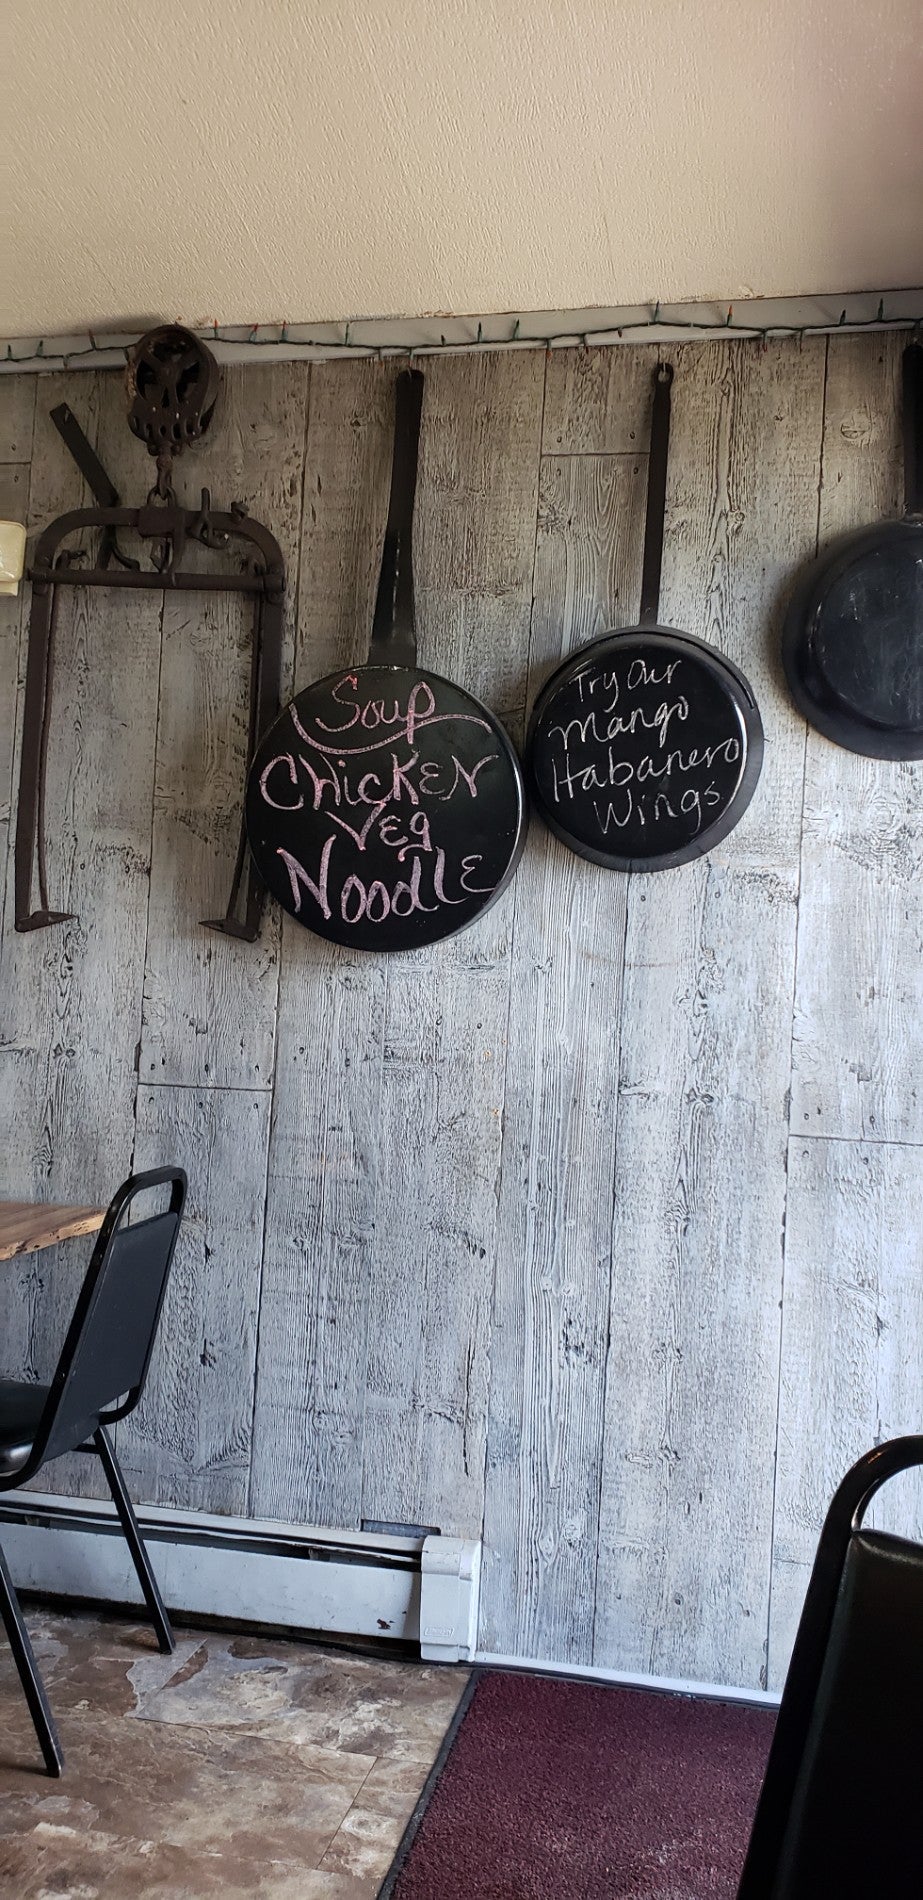 Soup
Chicken
Veg
Noodle
Try Our
Mango
Habanero
Wings